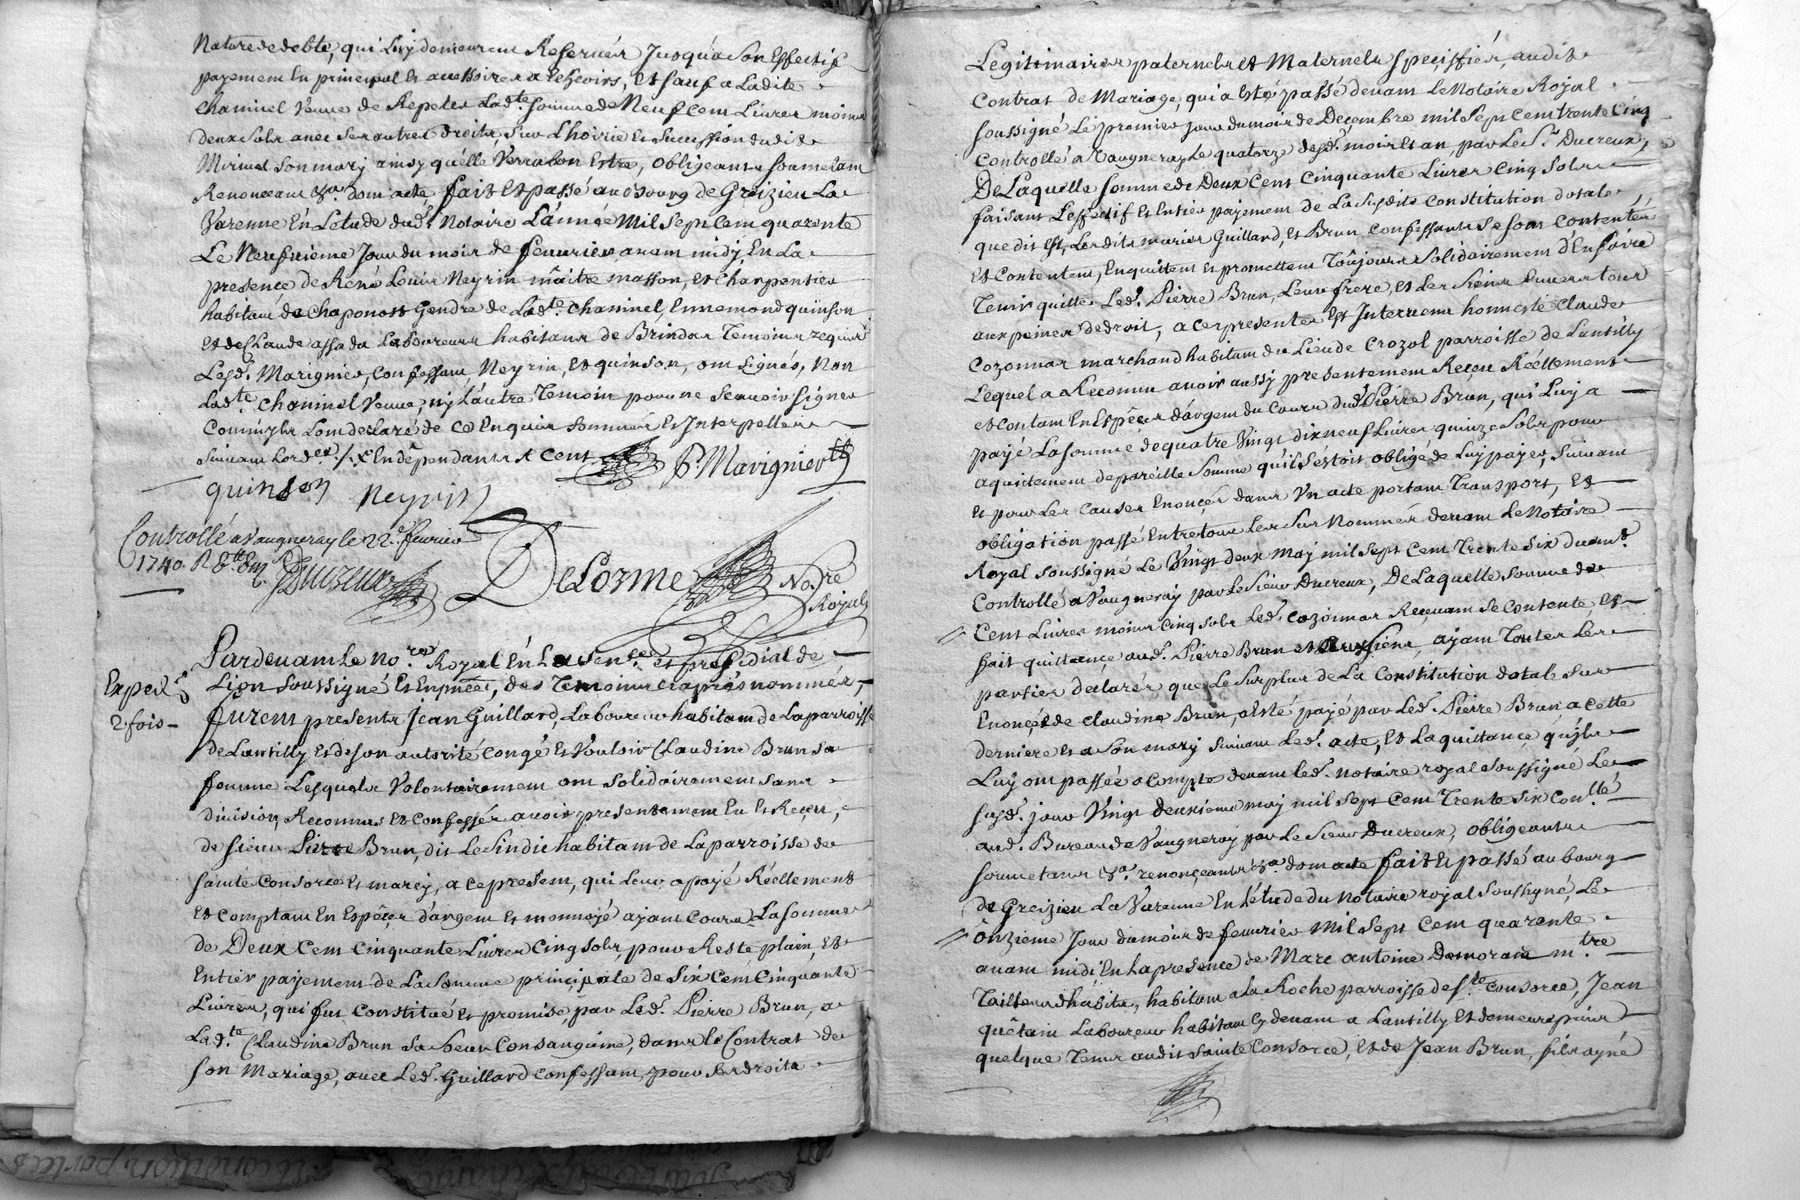 Nature de debte, qui luy demeurent Reservés Jusqu'a Son Effectif
payement En principal Et accessoires a Echeoirs, Et Sauf a Ladite
Chaminel Veuve de Repeter Lad.te Somme de Neuf Cent Livres moins
deux Sols avec Ses autres droits, Sur L'hoirie Et Succession dudit
Mirinel Son mary ainsy qu'elle Verra bon Estre, Obligeants Soumetant
Renonceant &a. dont acte, fait Et passé au bourg de Greizieu La
Varenne En L'étude dud.t Notaire L'année Mil Sept Cent quarente
Le Neufvieme Jour du mois de fevurier avant midy, En La
presence de René Louis Neyrin maitre masson, Et Charpentier
habitant de Chaponost Gendre de Lad.te Chaminel, Ennemond quinson
et de Claude assada Laboureurs habitans de Brindas Temoins requis
Lesd. Marignier, Confessant Neyrin, Et quinson, ont Signés, Non
Lad.te Chaminel Veuve, ny L'autre Temoin pour ne Scavoir Signer
Comm'ils L'ont declaré de Ce Enquis Sommés Et Interpellés
Suivant L'ord.ce ./. x Endépendants x Cent
P. Marignier
quinson Neyrin
Controllé a Vaugneray le 22.e fevrier
1740 R 8.tt 8ms Ducreux
DeLorme No.re
Royal
Pardevant Le No.re Royal En La Sen.cee et presidial de
Lion Soussigné Et En presence, des Temoins Ciaprés nommés,
Exped.é
2. fois
furent presents Jean Guillard, Laboureur habitant de La parroisse
de Lantilly Et de Son autorité Congé Et Vouloir Claudine Brun Sa
femme Lesquels Volontairement ont Solidairement Sans
division, Reconnus Et Confessés avoir presentement Eu Et Reçeu,
de Sieur Pierre Brun, dit Le Sindic habitant de La parroisse de
Sainte Consorce Et marcy, a Ce present, qui Leur a payé Réellement
Et Comptant En Espêces d'argent Et monnoyé ayant Cours La Somme
de Deux Cent Cinquante Livres Cinq Sols, pour Reste plain, Et
Entier payement de La Somme principale de Six Cent Cinquante
Livres, qui fut Constitué Et promise, par Led. Pierre Brun, a
Lad.te Claudine Brun Sa Soeur Consanguine, dans le Contrat de
Son Mariage, avec Led. Guillard Confessant, pour Ses droits
Legitimaires paternels Et Maternels Specissiés, audit
Contrat de Mariage, qui a Esté passé devant Le Notaire Royal
Soussigné Le premier jour du mois de Decembre mil Sept Cent trente Cinq
Controllé a Vaugneray Le quatorze desd. mois Et an par Le S.r Ducreux,
De Laquelle Somme de Deux Cent Cinquante Livres Cinq Sols
faisant L'effectif Et Entier payement de La Susdite Constitution dotale
que dit Est, Lesdits mariés Guillard, Et Brun Confessants Se Sont Contentés
Et Contentent, En quittent Et promettent Toujours Solidairement d'En faire
Tenir quitte Led. Pierre Brun, Leur frere, et Les Siens Envers tous
aux peines de droit, a Ces presentes Est Intervenu honneste Claude
Cozonnas marchand habitant du Lieu de Crozol parroisse de Lantilly
Lequel a Reconnu avoir aussy presentement Reçeu Réellement
et Contant En Espêces d'argent du Cours dud. Pierre Brun, qui Luy a
payé La Somme de quatre Vingt dixneuf Livres quinze Sols pour
aquitement de pareille Somme qu'il S'estoit obligé de Luy payer, Suivant
Et pour Les Causes Enoncés dans Un acte portant Transport, Et
obligation passé Entre tous Les Sus Nommés devant Le Notaire
Royal Soussigné Le Vingt deux may mil Sept Cent Trente Six duem.t
Controllé a Vaugneray par Le Sieur Ducreux, De Laquelle Somme de
Cent Livres moins Cinq Sols Led. Cozonnas Reçevant Se Contente, Et
fait quittance aud. Pierre Brun et aux Siens, ayant Toutes Les
parties declarés que Le Surplus de La Constitution dotale Sus
Enoncée de Claudine Brun, a Esté payé par Led. Pierre Brun a Cette
derniere Et a Son mary Suivant Led. acte, Et La quittance qu'ils
Luy ont passée a Compte devant led. Notaire royal Soussigné Le
Susd. jour Vingt deuxieme may mil Sept Cent Trente Six Con.llé
aud. Bureau de Vaugneray par Le Sieur Ducreux, obligeants
Soumetans &a. renonçeants &a dont acte fait Et passé au bourg
de Greizieu La Varenne En L'étude du Notaire royal Soussigné, Le
onzieme Jour du mois de fevurier Mil Sept Cent quarente
avant midi En La presence de Marc antoine Demorant m.tre
Tailleur d'habits, habitant a La Roche parroisse de S.te Consorce, Jean
quêtain Laboureur habitant Cy devant a Lantilly Et demeurt puis
quelque Tems audit Sainte Consorce, Et de Jean Brun, fils ayné